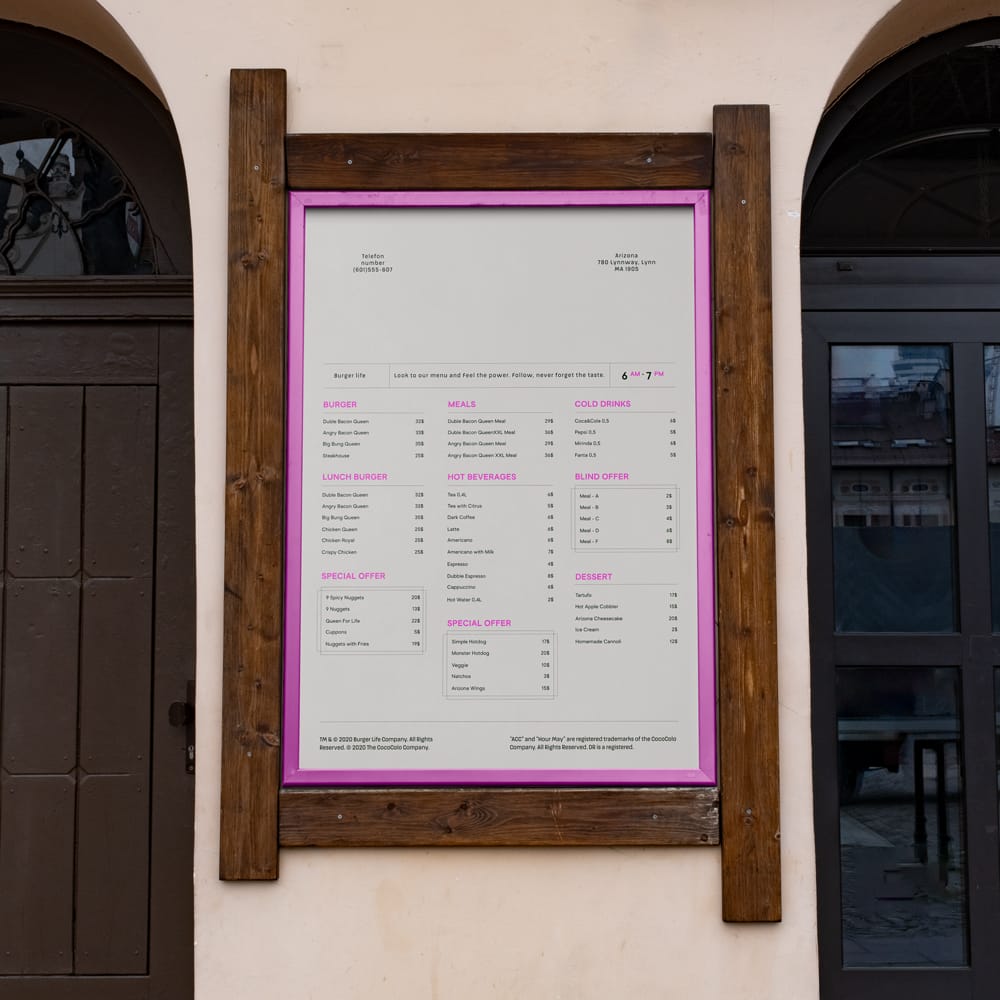 Telefon
number
(601)555-607
Arizona
780 Lynnway, Lynn
MA 1905
Burger life
Look to our menu and Feel the power. Follow, never forget the taste.
6 AM - 7 PM
BURGER
Duble Bacon Queen 32$
Angry Bacon Queen 33$
Big Bung Queen 35$
Steakhouse 25$
LUNCH BURGER
Duble Bacon Queen 32$
Angry Bacon Queen 33$
Big Bung Queen 35$
Chicken Queen 25$
Chicken Royal 25$
Crispy Chicken 25$
SPECIAL OFFER
9 Spicy Nuggets 20$
9 Nuggets 13$
Queen For Life 22$
Cuppons 5$
Nuggets with Fries 19$
MEALS
Duble Bacon Queen Meal 29$
Duble Bacon QueenXXL Meal 36$
Angry Bacon Queen Meal 29$
Angry Bacon Queen XXL Meal 36$
HOT BEVERAGES
Tea 0,4L 6$
Tea with Citrus 5$
Dark Coffee 6$
Latte 6$
Americano 6$
Americano with Milk 7$
Espresso 4$
Dubble Espresso 8$
Cappuccino 6$
Hot Water 0,4L 2$
SPECIAL OFFER
Simple Hotdog 17$
Monster Hotdog 20$
Veggie 10$
Natchos 3$
Arizona Wings 15$
COLD DRINKS
Coca&Cola 0,5 6$
Pepsi 0,5 5$
Mirinda 0,5 6$
Fanta 0,5 5$
BLIND OFFER
Meal - A 2$
Meal - B 3$
Meal - C 4$
Meal - D 6$
Meal - F 8$
DESSERT
Tartufo 17$
Hot Apple Cobbler 15$
Arizona Cheesecake 20$
Ice Cream 2$
Homemade Cannoli 12$
TM & © 2020 Burger Life Company. All Rights
Reserved. © 2020 The CocoColo Company.
"ACC" and "Hour May" are registered trademarks of the CocoColo
Company. All Rights Reserved. DR is a registered.